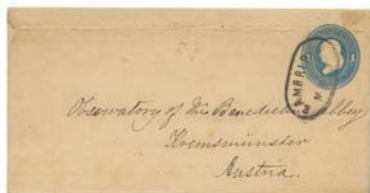 1
Observatory of the Benedictine Abbey
Kremsmünster
Austria.